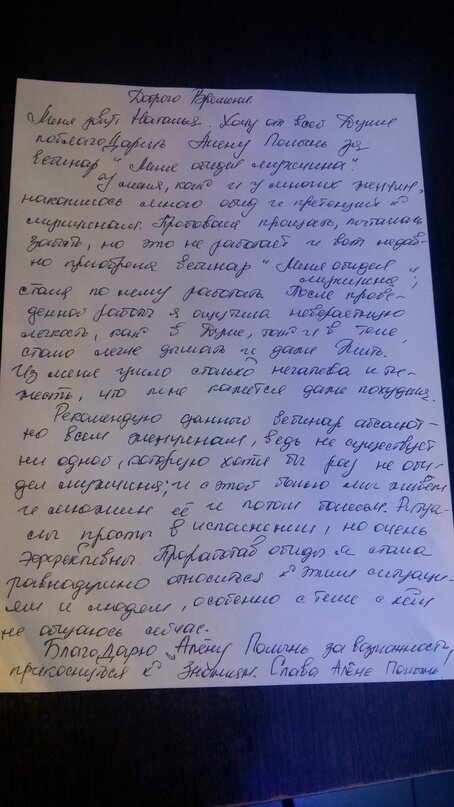 Доброго Времени.
Меня зовут Наталья. Хочу от всей Души
поблагоДарить Алену Полынь за
вебинар "Меня обидел мужчина".
У меня, как и у многих женщин,
накопилось много обид и претензий к
мужчинам. Пробовала прощать, пыталась
забыть, но это не работает и вот недав-
но приобрела вебинар "Меня обидел
мужчина",
стала по нему работать. После прове-
денной работы я ощутила невероятную
легкость, как в Душе, так и в теле,
стало легче дышать и даже Жить.
Из меня ушло столько негатива и тя-
жести, что мне кажется даже похудела.
Рекомендую данный вебинар абсолют-
но всем женщинам, ведь не существует
ни одной, которую хотя бы раз не оби-
дел мужчина, и с этой болью мы живём
и множим её и потом болеем. Ритуа-
лы просты в исполнении, но очень
эффективны. Проработав обиды я стала
равнодушно относиться к этим ситуаци-
ям и людям, особенно с теми с кем
не общаюсь сейчас.
БлагоДарю Алёну Полынь за возможность
прикоснуться к Знаниям. Слава Алёне Полынь.